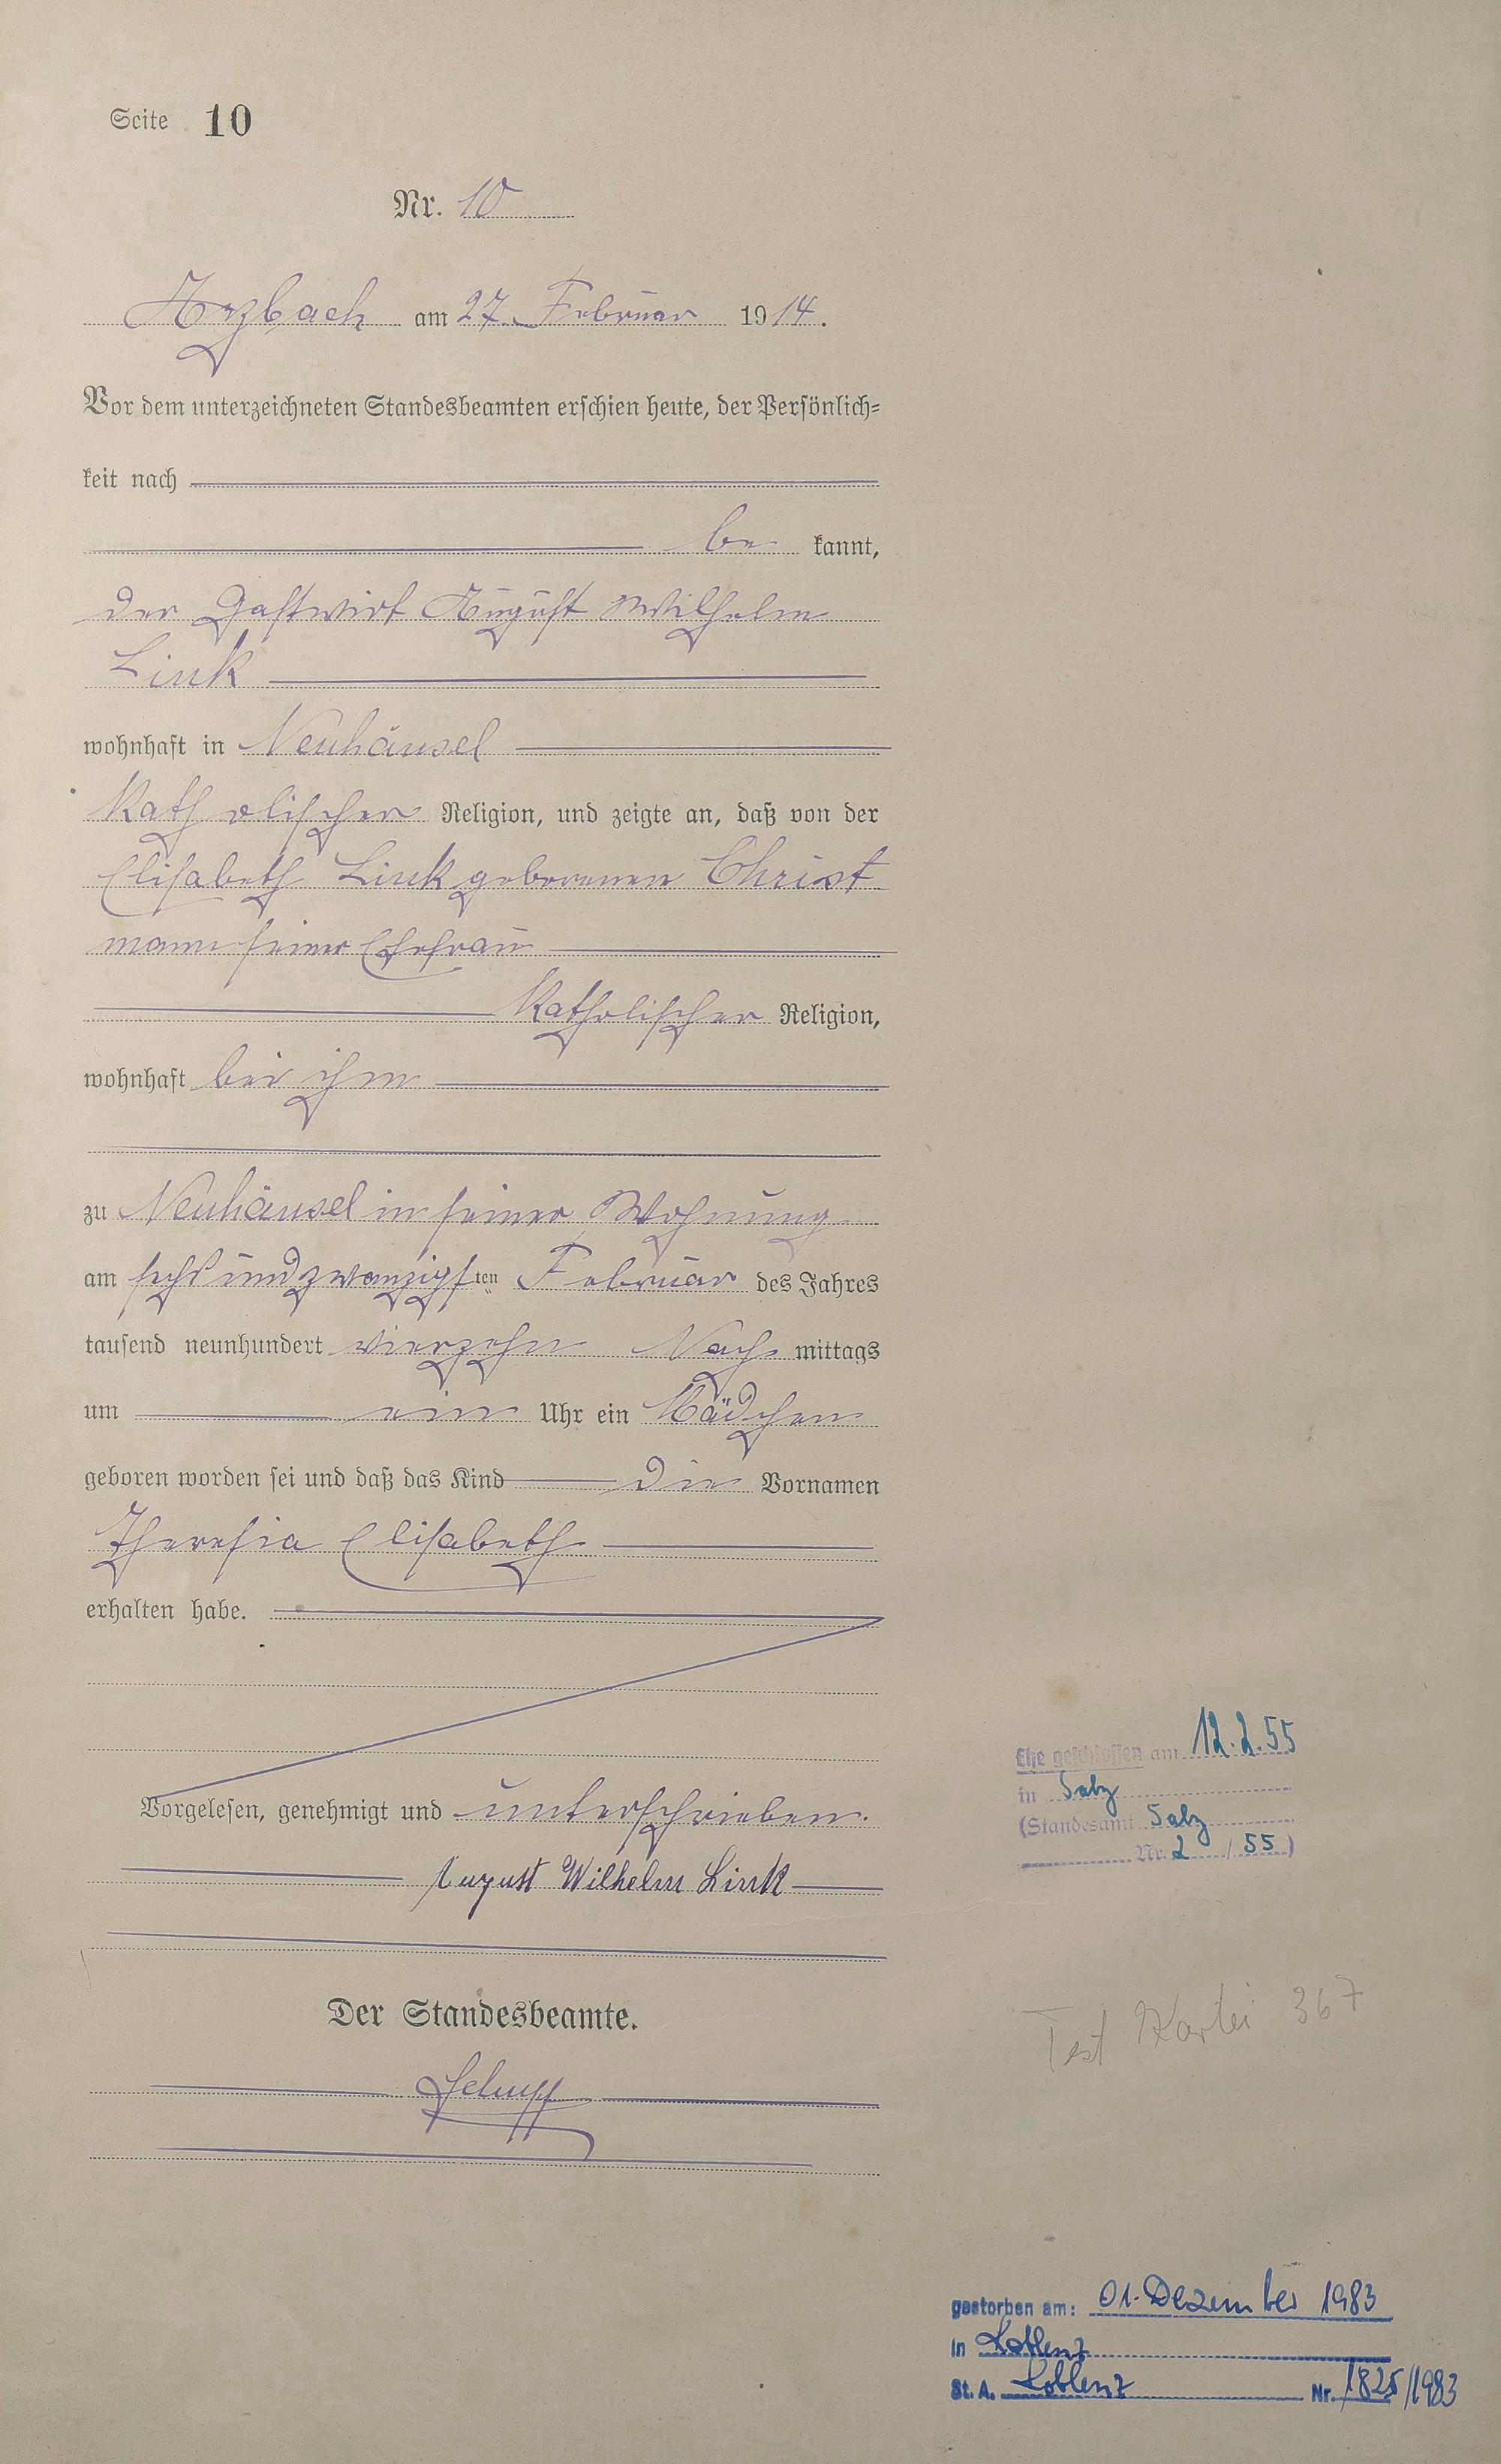 Seite 10
Nr. 10
Arzbach am 27. Februar 1914.
Vor dem unterzeichneten Standesbeamten erschien heute, der Persönlich=
keit nach
be kannt,
der Gastwirt August Wilhelm
Link
wohnhaft in Neuhäusel
katholischer Religion, und zeigte an, daß von der
Elisabeth Link geborenen Christ
mann seiner Ehefrau
katholischer Religion,
wohnhaft bei ihm
zu Neuhäusel in seiner Wohnung
am sechsundzwanzigsten Februar des Jahres
tausend neunhundert vierzehn Nach mittags
um ein Uhr ein Mädchen
geboren worden sei und daß das Kind die Vornamen
Theresia Elisabeth
erhalten habe.
Vorgelesen, genehmigt und unterschrieben.
August Wilhelm Link
Der Standesbeamte.
Ehe geschlossen am 12.2.55
in Salz
(Standesamt Salz
Nr. 2 / 55)
Test Kartei 367
gestorben am: 01. Dezember 1983
in Koblenz
St. A. Koblenz Nr. 1825/1983